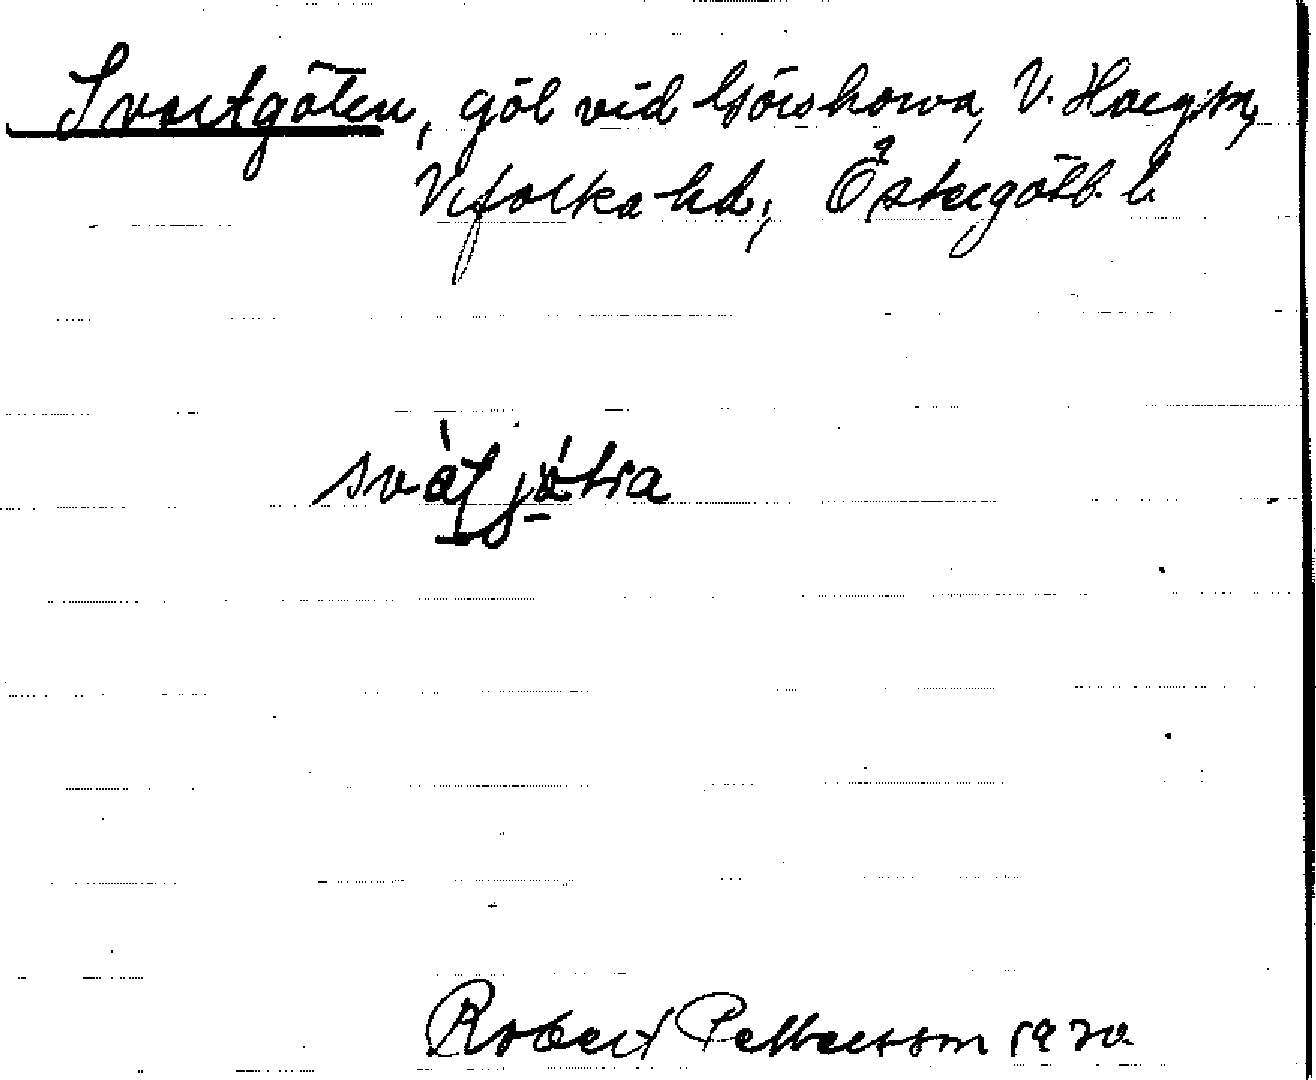 Svartgölen, göl vid Görskorva, V. Harg sn,
Vifolka hd, Östergötl. l.
Robert Pettersson 1920